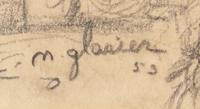 m glasier
53